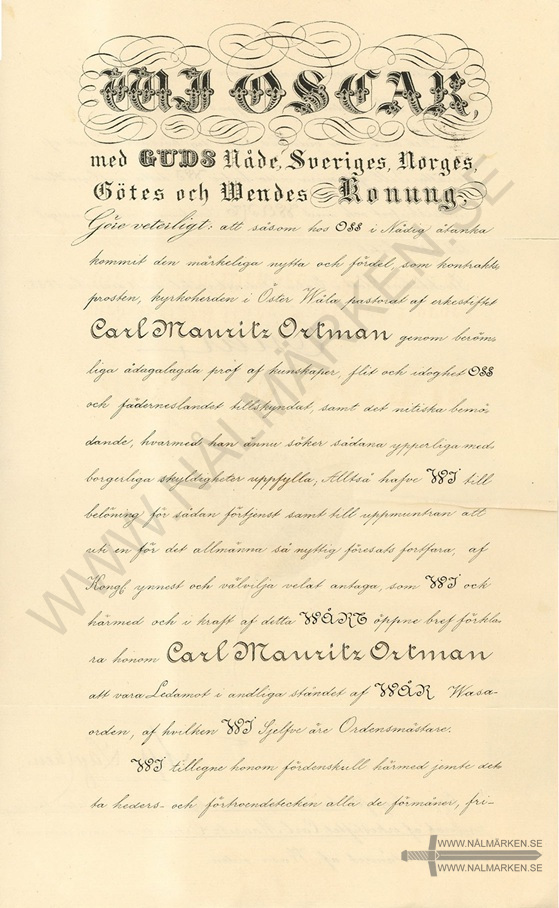 WIJ OSCAR,
med GUDS Nåde, Sveriges, Norges,
Götes och Wendes Konung,
Göre veterligt: att såsom hos OSS i Nådig åtanka
kommit den märkeliga nytta och fördel, som kontrakts
prosten, kyrkoherden i Öster Wåla pastorat af erkestiftet
Carl Mauritz Ortman genom beröm-
liga ådagalagda prof af kunskaper, flit och idoghet OSS
och fäderneslandet tillskyndat, samt det nitiska bemö-
dande, hvarmed han ännu söker sådana ypperliga med-
borgerliga skyldigheter uppfylla; Alltså hafve WI till
belöning för sådan förtjenst samt till uppmuntran att
uti en för det allmänna så nyttig föresats fortfara, af
Kongl ynnest och välvilja velat antaga, som WI ock
härmed och i kraft af detta WÅRT öppne bref förkla-
ra honom Carl Mauritz Ortman
att vara Ledamot i andliga ståndet af WÅR Wasa-
orden, af hvilken WI Sjelfve äre Ordensmästare.
WI tillegne honom fördenskull härmed jemte det-
ta heders- och förtroendetecken alla de förmåner, fri-
WWW.NÅLMÄRKEN.SE
WWW.NÅLMÄRKEN.SE
WWW.NÅLMÄRKEN.SE